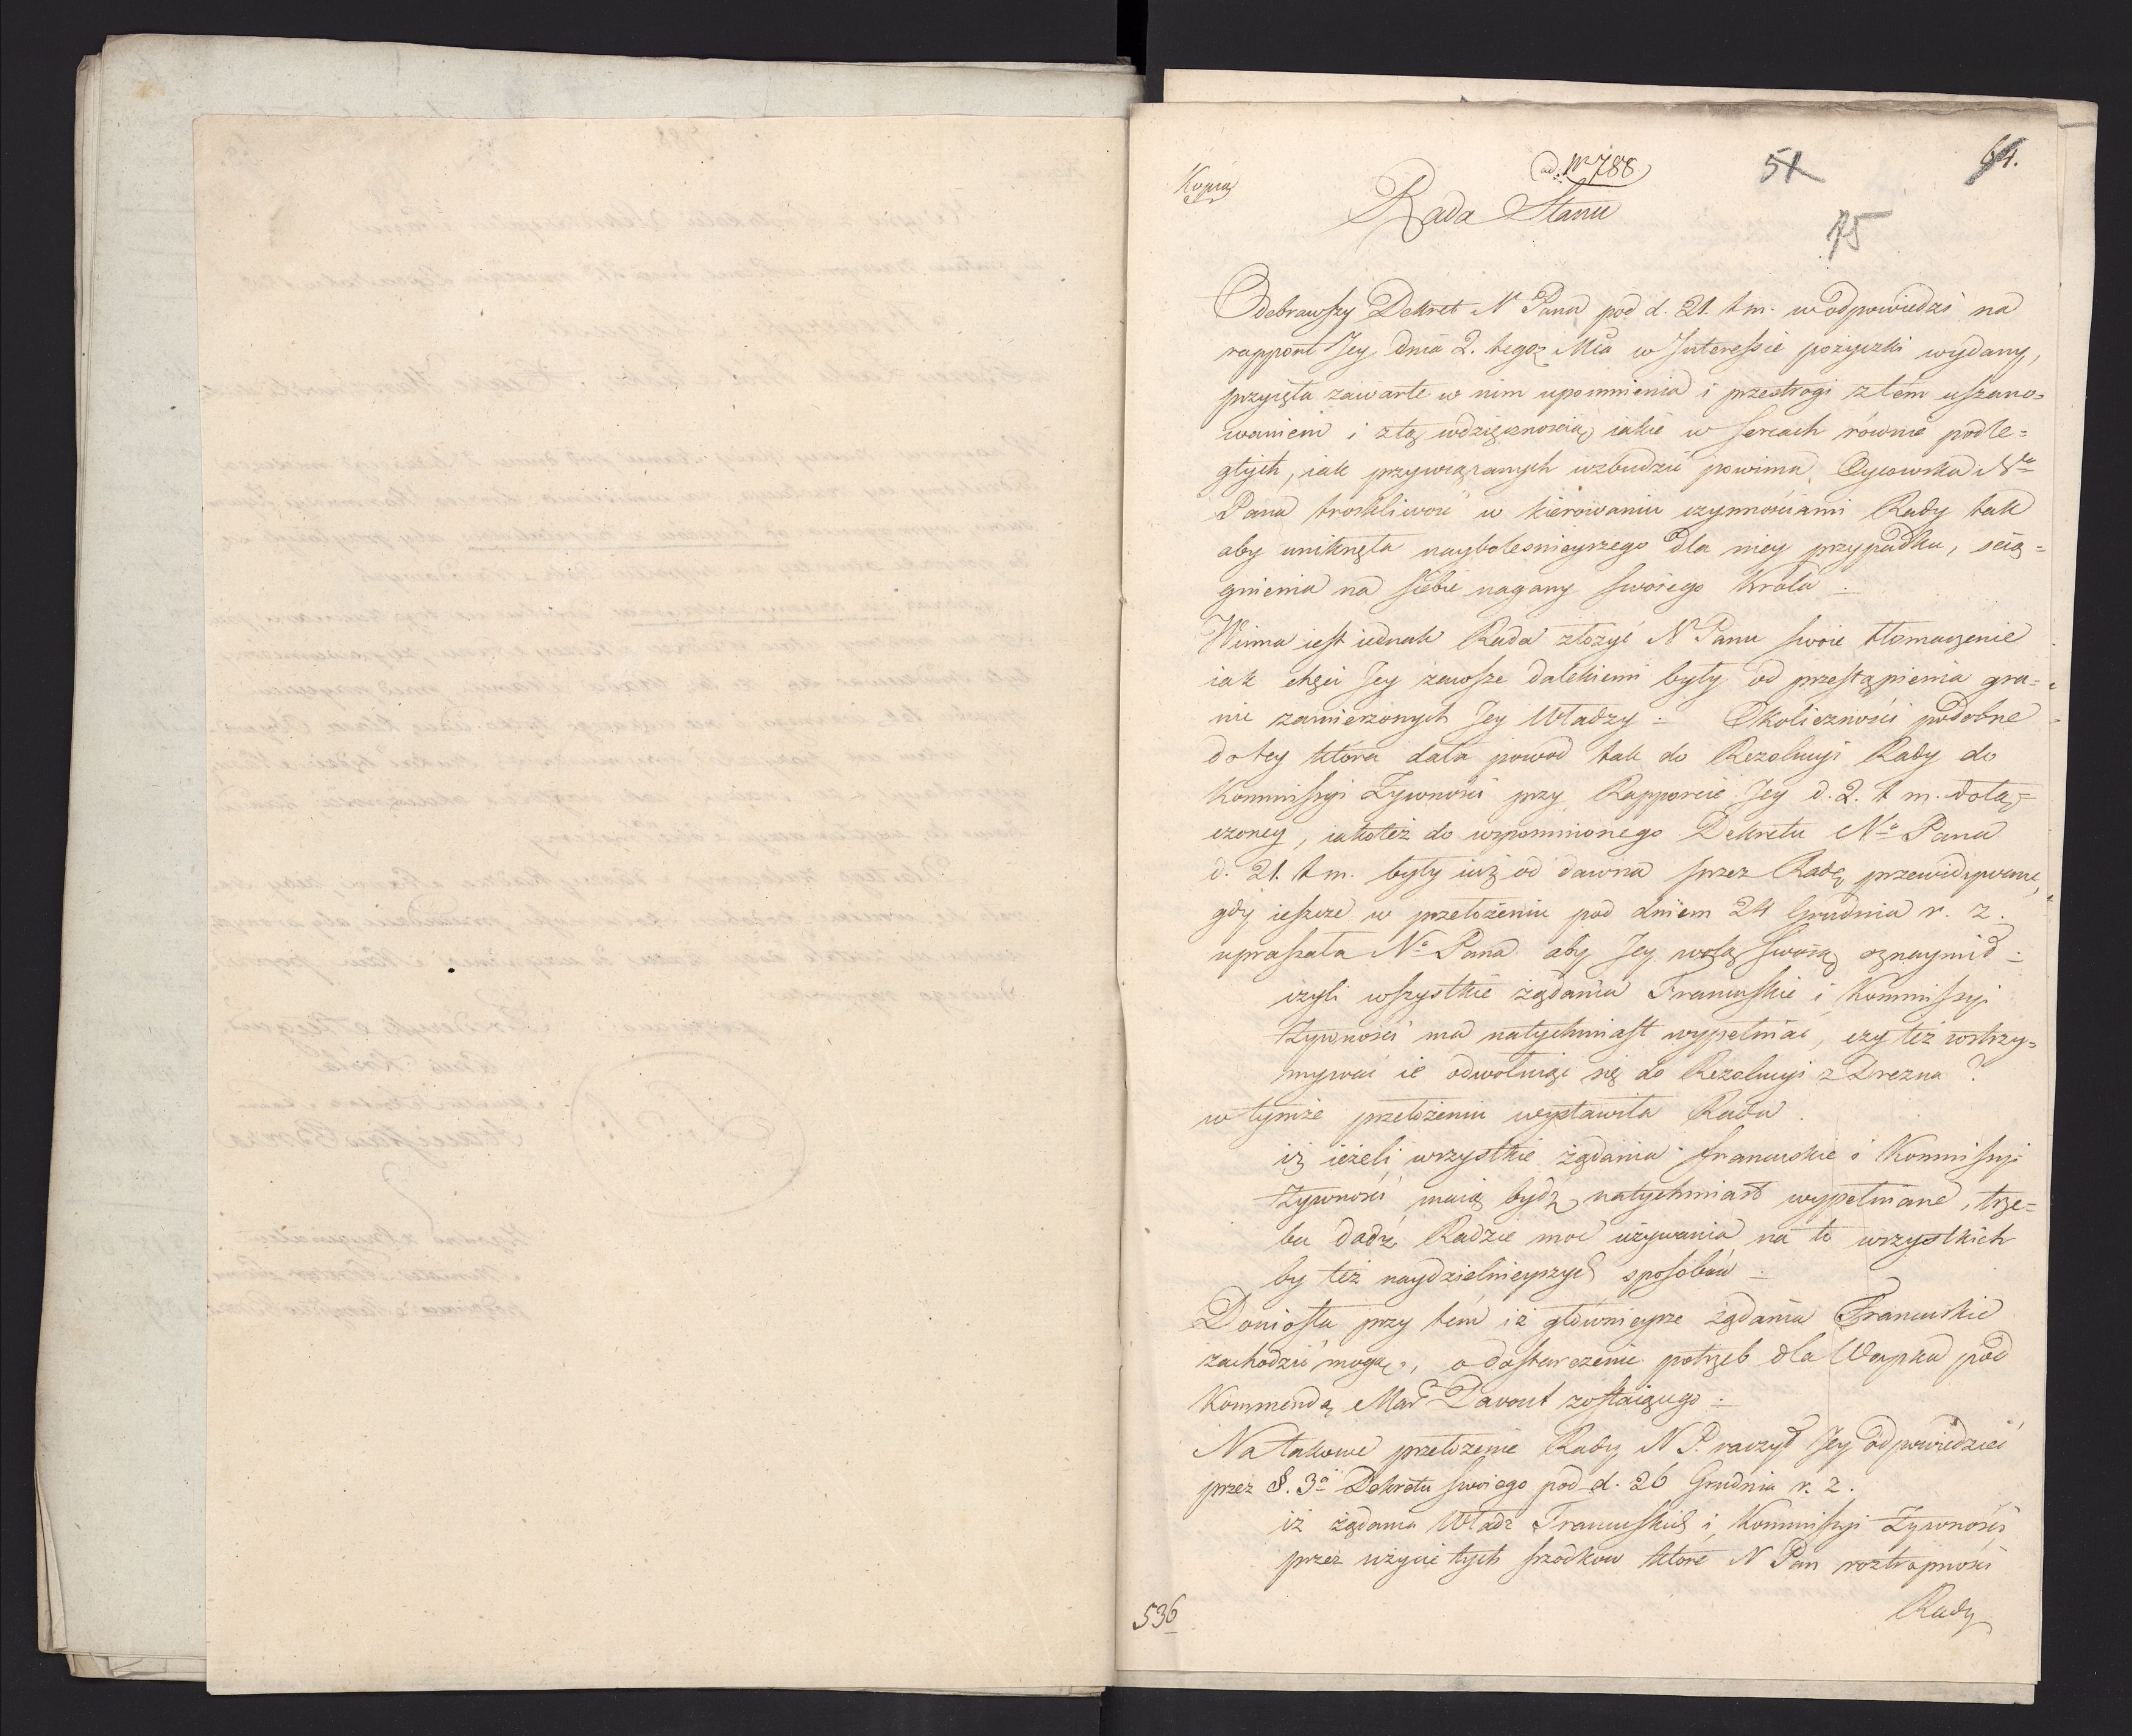 Kopia
ad Nr 788
51
64.
Rada Stanu
15
Odebrawszy Dekret N Pana pod d. 21. t m. w odpowiedzi na
rapport Jey dnia 2. tegoż Mca w Interessie pożyczki wydany,
przyięła zawarte w nim upomnienia i przestrogi z tém uszano=
waniem i z tą wdzięcznością, iakie w sercach równie podle=
głych, iak przywiązanych wzbudzić powinna Oycowska No
Pana troskliwość w kierowaniu czynnościami Rady tak
aby uniknęła nayboleśnieyszego dla niey przypadku, ścią=
gnienia na siebie nagany swoiego Króla :
Winna iest iednak Rada złożyć N Panu swoie tłomaczenie
iak chęci Jey zawsze dalekiemi były od przestąpienia gra=
nic zamierzonych Jey Władzy : Okoliczności podobne
do tey która dała powod tak do Rezolucyi Rady do
Kommissyi Żywności przy Rapporcie Jey d. 2. t m. dołą=
czoney, iakoteż do wspomnionego Dekretu No Pana
d. 21. t m. były iuż od dawna przez Radę przewidywane,
gdy ieszcze w przełożeniu pod dniem 24 Grudnia r. z.
upraszała No Pana aby Jey wolą swoią oznaymił :
czyli wszystkie żądania Francuskie i Kommissyi
Żywności ma natychmiast wypełniać, czy też wstrzy=
mywać ie odwołuiąc się do Rezolucyi z Drezna ?
w tymże przełożeniu wystawiła Rada.
iż ieżeli wszystkie żądania francuskie i Kommissyi
Żywności maią bydź natychmiast wypełniane, trze=
ba dadź Radzie moc używania na to wszystkich
by też naydzielnieyszych sposobów :
Doniosła przy tém iż główniejsze żądania Francuskie
zachodzić mogą, o dostarczenie potrzeb dla Woyska pod
Kommendą Mar Davout zostaiącego :
Na takowe przełożenie Rady N P. raczył Jey odpowiedzieć
przez §. 3o Dekretu swoiego pod d. 26 Grudnia r. z.
iż żądania Władz Francuskich i Kommissyi Żywności
przez użycie tych srzodkow które N Pan roztropności
Rady
536